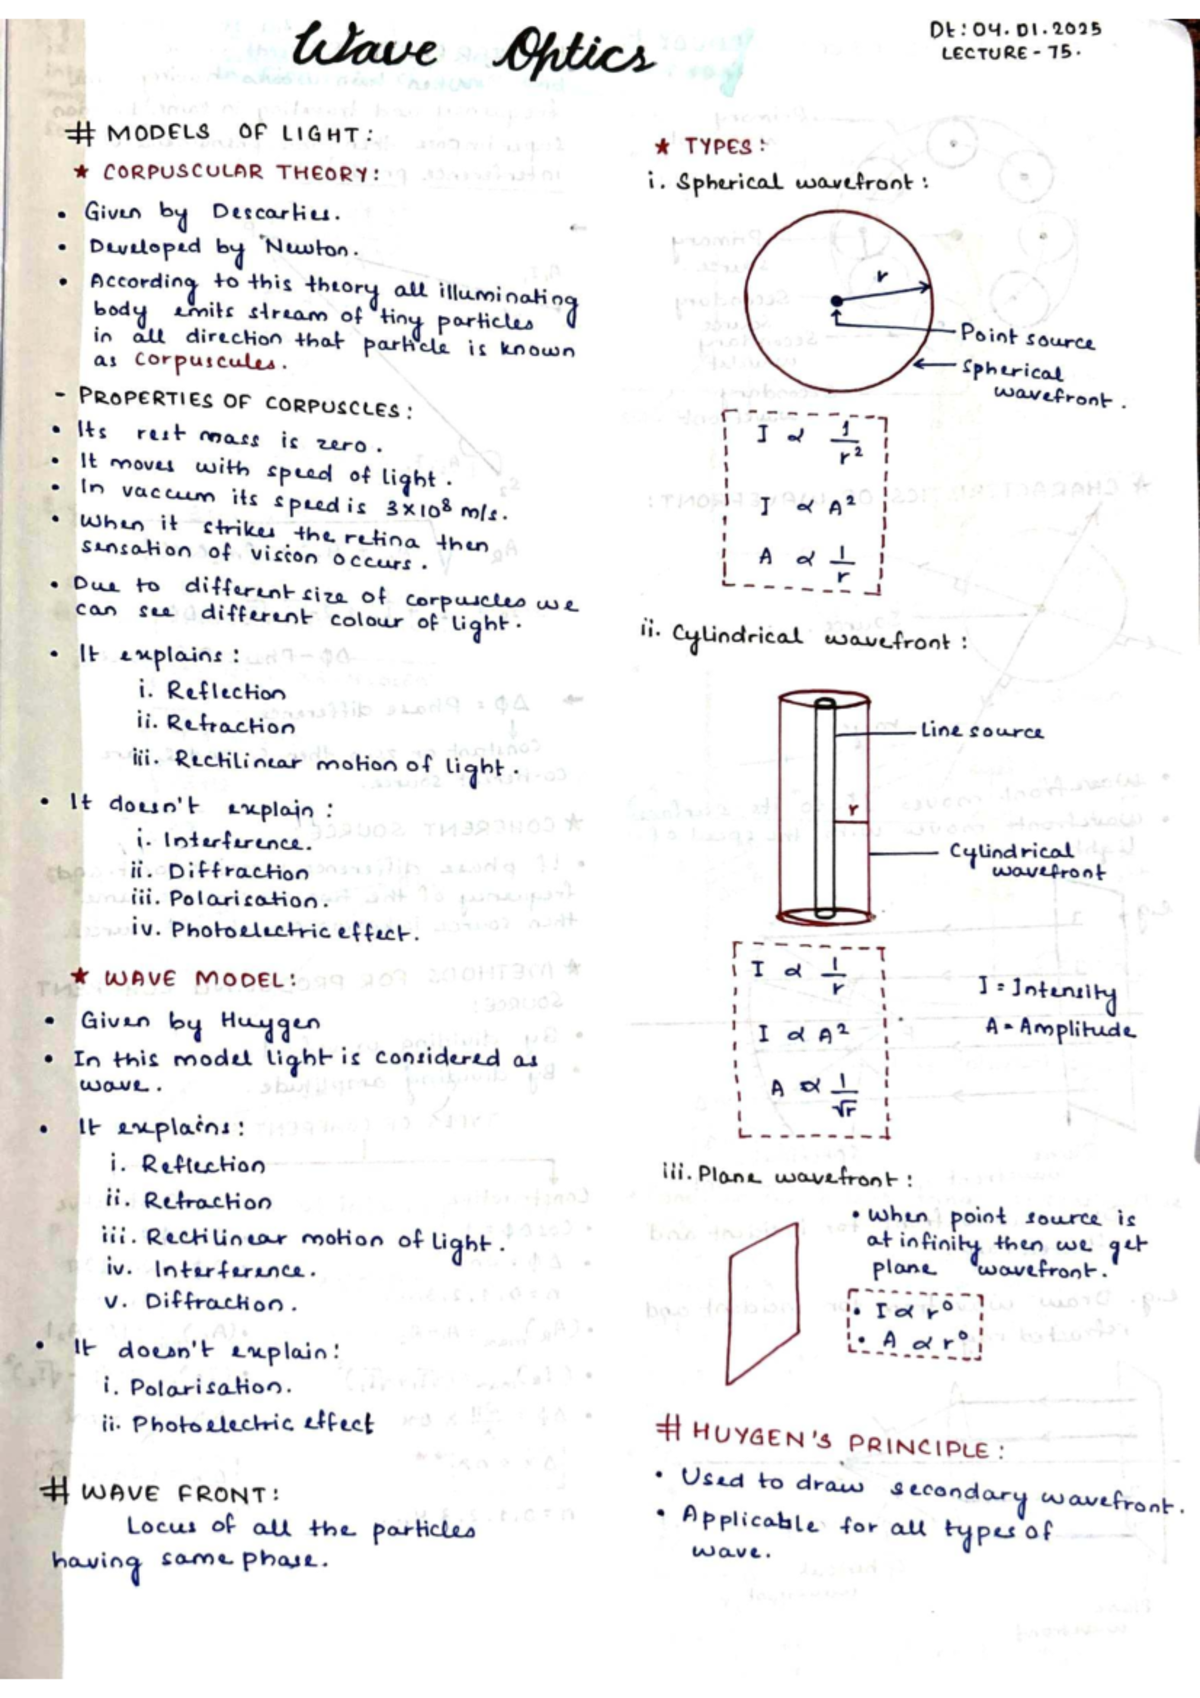 Wave Optics
Dt: 04.01.2025
LECTURE - 75.
# MODELS OF LIGHT:
★ CORPUSCULAR THEORY:
• Given by Descarties.
• Developed by Newton.
• According to this theory all illuminating
body emits stream of tiny particles
in all direction that particle is known
as Corpuscules.
- PROPERTIES OF CORPUSCLES:
• Its rest mass is zero.
• It moves with speed of light.
• In vaccum its speed is 3×10⁸ m/s.
• When it strikes the retina then
sensation of vision occurs.
• Due to different size of corpuscles we
can see different colour of light.
• It explains:
i. Reflection
ii. Refraction
iii. Rectilinear motion of light.
• It doesn't explain:
i. Interference.
ii. Diffraction
iii. Polarisation.
iv. Photoelectric effect.
★ WAVE MODEL:
• Given by Huygen
• In this model light is considered as
wave.
• It explains:
i. Reflection
ii. Refraction
iii. Rectilinear motion of light.
iv. Interference.
v. Diffraction.
• It doesn't explain:
i. Polarisation.
ii. Photoelectric effect
# WAVE FRONT:
Locus of all the particles
having same phase.
★ TYPES:
i. Spherical wavefront:
r
Point source
Spherical
wavefront.
I ∝ 1/r²
I ∝ A²
A ∝ 1/r
ii. Cylindrical wavefront:
Line source
r
Cylindrical
wavefront
I ∝ 1/r
I ∝ A²
A ∝ 1/√r
I = Intensity
A = Amplitude
iii. Plane wavefront:
• When point source is
at infinity then we get
plane wavefront.
• I ∝ r⁰
• A ∝ r⁰
# HUYGEN'S PRINCIPLE:
• Used to draw secondary wavefront.
• Applicable for all types of
wave.